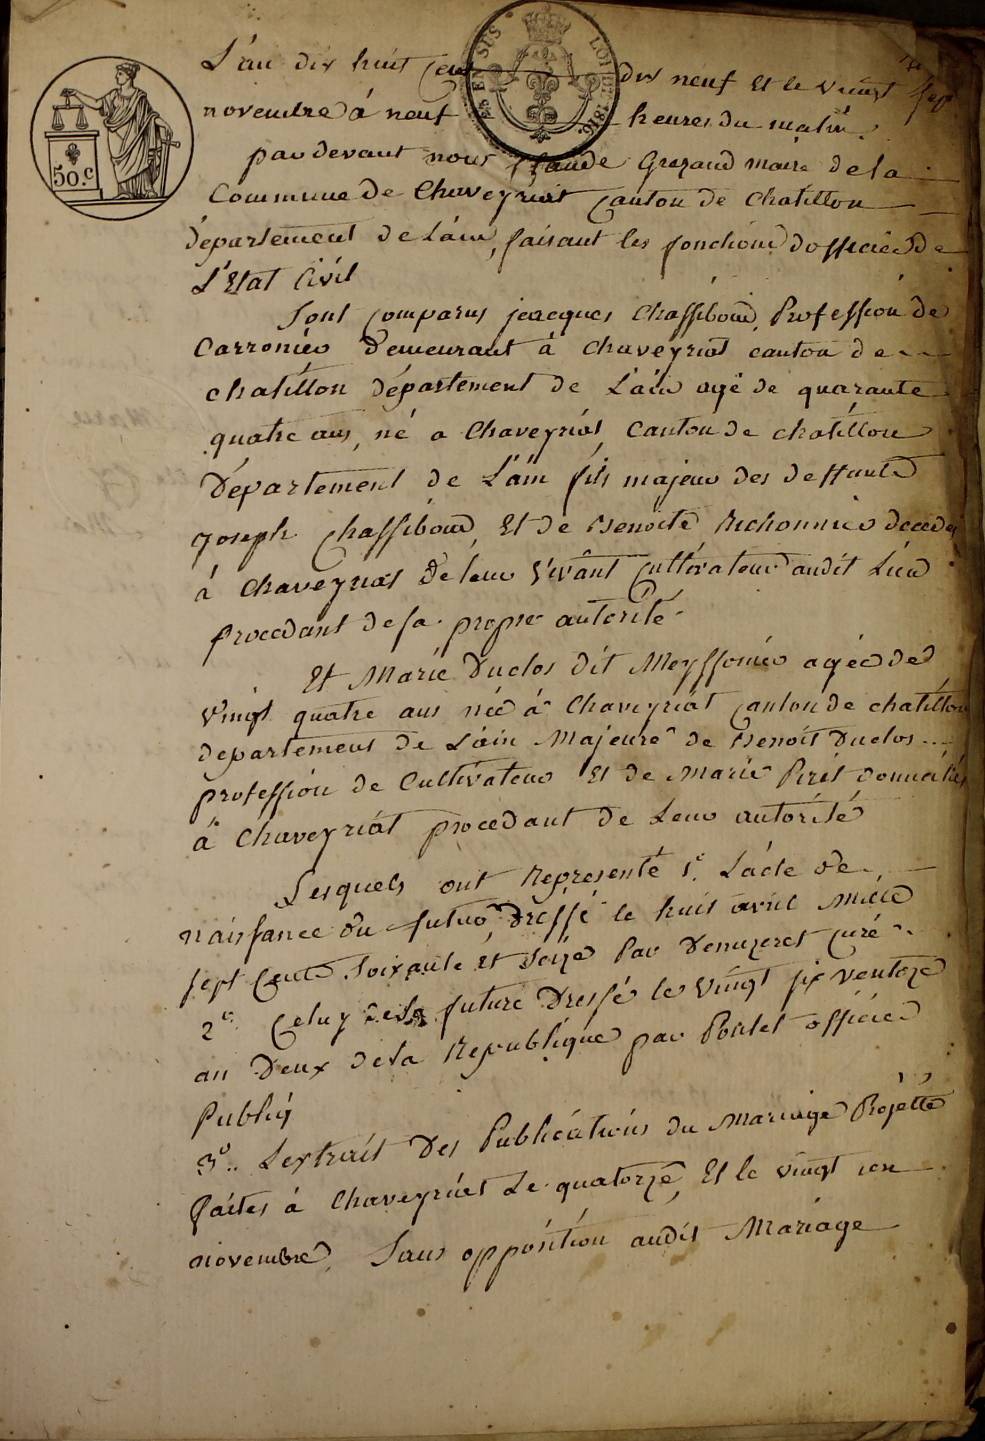 L'an dix huit Cent dix neuf Et le vingt sept
novembre à neuf heures du matin.
par devant nous Claude Grezaud maire de la
Commune de Chaveyriat Canton de Chatillon
département de L'ain, faisant les fonctions d'officier de
L'Etat Civil
Sont Comparus jacques Chassiboud, Profession de
Carronier Demeurant à Chaveyriat canton de
chatillon département de L'ain agé de quarante
quatre ans, né a Chaveyriat, Canton de chatillon
Département de L'ain fils majeur des deffunts
Joseph Chassiboud, Et de Benoite Richonnier décédés
à Chaveyriat de leur vivant Cultivateur audit Lieu
procedant de sa propre autorité
Et Marie Duclos dit Meyssonier agée de
vingt quatre ans née à Chaveyriat Canton de chatillon
departement de L'ain Majeure de Benoit Duclos
profession de Cultivateur Et de Marie Piret domiciliés
à Chaveyriat procedant de Leur autorité
Lesquels ont Representé 1.° L'acte de
naissance du futur Dressé le huit avril Mille
sept Cent Soixante et Seize Par Demuzeret Curé
2° Celuy de la future Dressé le vingt six ventoze
an Deux de la Republique par Poulet officier
Public
3°. L'extrait Des Publications du Mariage Projetté
faites à Chaveyriat Le quatorze, Et le vingt un
novembre, Sans opposition audit Mariage
50.C
LOI DE 1816.